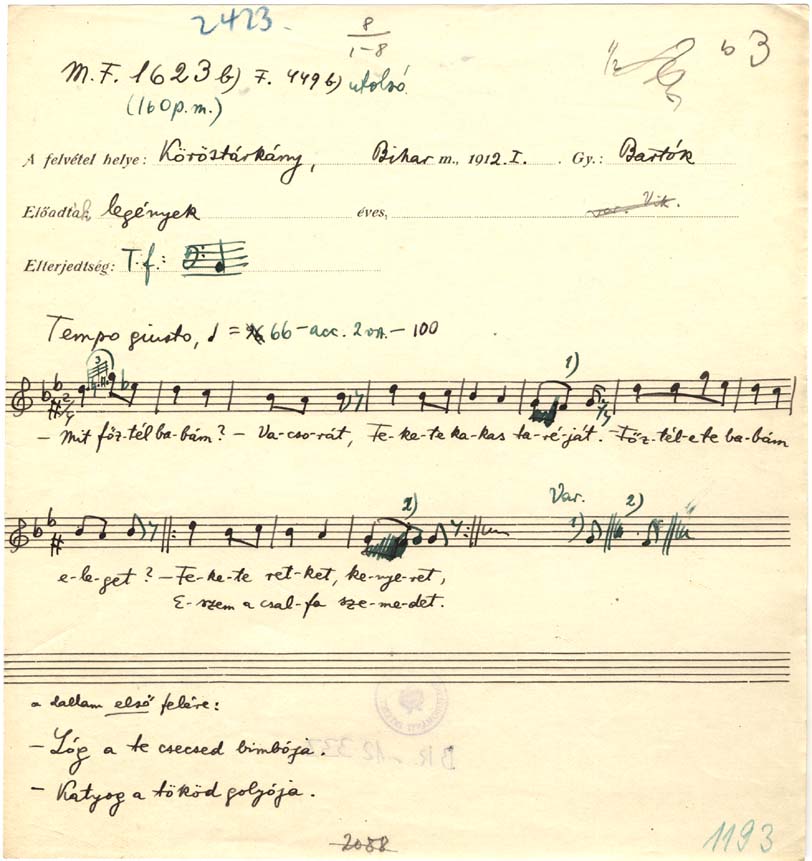 2423.
8
1-8
½
b 3
M.F. 1623 b) F. 449 b) utolsó
(160 p.m.)
A felvétel helye: Köröstárkány, Bihar m., 1912. I. Gy.: Bartók
Előadták legények éves, var. Vik.
Elterjedtség: T.f.:
Tempo giusto, ♩ = 66 - acc. 2 - 100
3
1)
– Mit főz-tél ba-bám? – Va-cso-rát, Fe-ke-te ka-kas ta-ré-ját. Főz-tél-e te ba-bám
2) Var. 1) 2)
e-le-get? – Fe-ke-te ret-ket, ke-nye-ret,
E-szem a csal-fa sze-me-det.
a dallam első felére:
– Lóg a te csecsed bimbója.
– Katyog a tököd golyója.
2088
1193